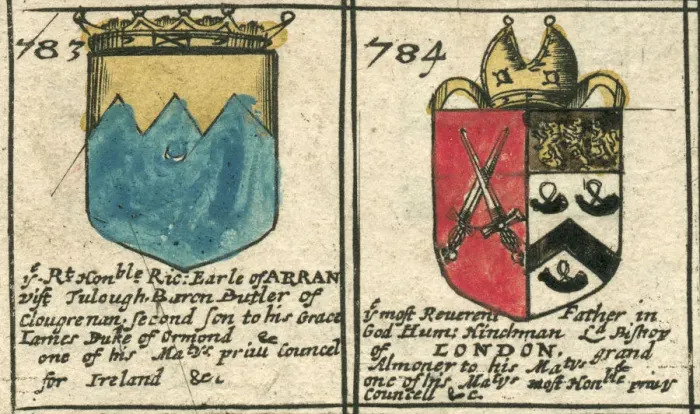 783
yᵉ Rᵗ Honᵇˡᵉ Ric: Earle of ARRAN
Vist Tulough. Baron Butler of
Clougrenan. second son to his Grace
Iames Duke of Ormond &c
one of his Matʸˢ priuy Councel
for Ireland &c.
784
yᵉ most Reverent Father in
God Hum: Hinchman Lᵈ Bishop
of LONDON. grand
Almoner to his Matʸˢ &c
one of his Matʸˢ most Honᵇˡᵉ priuy
councell &c.